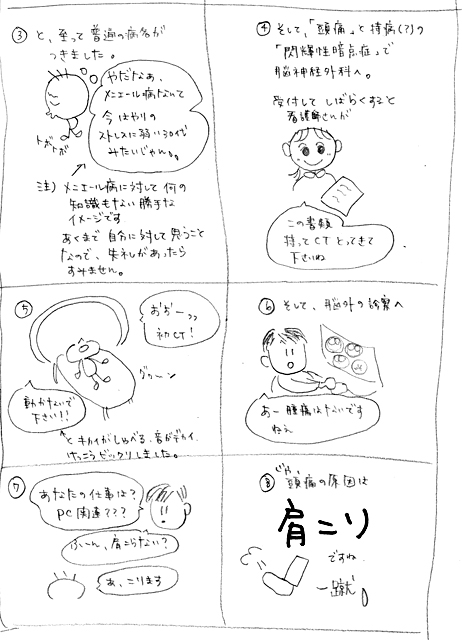 ③ と、至って普通の病名が
つきました。
やだなぁ、
メニエール病なんて
今はやりの
ストレスに弱い30代
みたいじゃん。。
トボトボ
注) メニエール病に対して何の
知識もない勝手な
イメージです
あくまで自分に対して思うこと
なので、失礼があったら
すみません。
④ そして、「頭痛」と持病(?)の
「閃輝性暗点症」で
脳神経外科へ。
受付してしばらくすると
看護師さんが
この書類
持ってCTとってきて
下さいね
⑤
おぉーっっ
初CT!
グゥーン
動かないで
下さい!!
とキカイがしゃべる、音がデカイ、
けっこうビックリしました。
⑥ そして、脳外の診察へ
あー腫瘍はないです
ねぇ
⑦
あなたの仕事は?
PC関連???
ふーん、肩こらない?
あ、こります
⑧ じゃ、
頭痛の原因は
肩こり
ですね。
一蹴